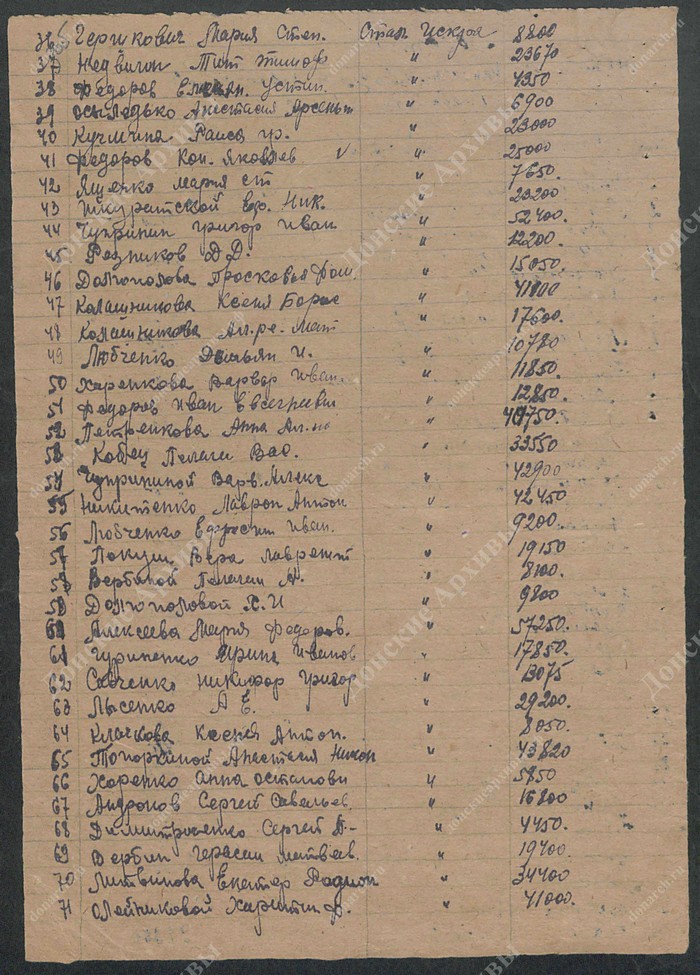 36 Гергикович Мария Степ. Стах Искра 8800
37 Недвигин Тит Тимоф " 23670
38 Федоров Устин. " 4350
39 Анастасия Арсеньт " 6900
40 Кучмина Раиса гр. " 23000
41 Федоров Кон. Яковлев v " 25000
42 Ященко Мария ст " 7650.
43 Шкуратской Ник. " 23200
44 Чупринин Григор Иван. " 52400.
45 Резников Д.Д. " 12200.
46 Долгополова Просковья " 15050.
47 Калашникова Ксеня Борис " 41800
48 Калашникова Мат " 17600.
49 Любченко Демьян И. " 10780
50 Харенкова Варвар Иван. " 11850
51 Федоров Иван " 12850.
52 Петренкова Анна " 750.
53 Кобец Пелаги Вас. " 33550
54 Чуприниной Варв. Алекс " 42900
55 Никитенко Лаврон Антон " 42450
56 Любченко Ефросин Иван. " 9200.
57 Вера Лаврент " 19150
58 Вербиной Пелагии " 8100.
59 Долгополовой Х.И " 9800
Алексеева Мария Федоров. " 57250.
61 Чуриненко Ирина Иванов " 17850.
62 Савченко Никифор Григор " 13075
63 Лысенко А Е. " 29200.
64 Клачкова Ксения Антон. " 8050.
65 Анастасия Никон " 43820
66 Харенко Анна Остапови " 5850
67 Андронов Сергей Савельев. " 16800
68 Димитриченко Сергей П- " 4450.
69 Вербин Герасим Матвеев. " 19400.
70 Литвинова Екатер Родион " 34400
71 Олейниковой Харитин. Ф. " 41000.
Донские Архивы
donarch.ru